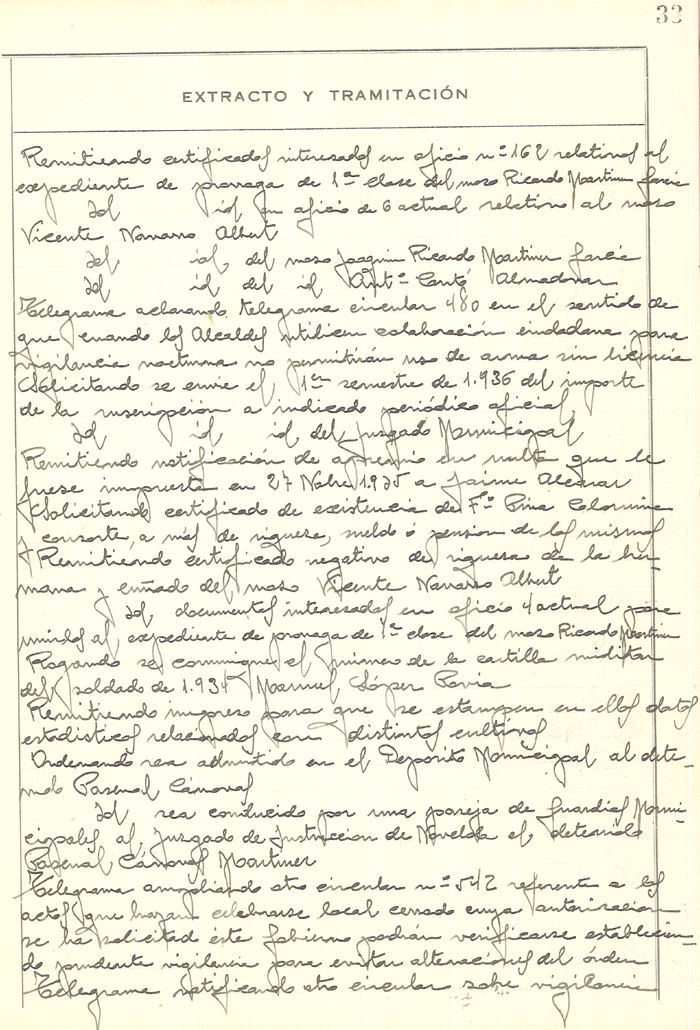 33
EXTRACTO Y TRAMITACIÓN
Remitiendo certificados interesados en oficio nº 162 relativos al
expediente de prorroga de 1ª clase del mozo Ricardo Martinez Garcia
Id id en oficio de 6 actual relativo al mozo
Vicente Navarro Albert
Id id. del mozo Joaquin Ricardo Martinez Garcia
Id id del id Antº Cantó Almodovar
Telegrama aclarando telegrama circular 480 en el sentido de
que cuando los Alcaldes utilicen colaboración ciudadana para
vigilancia nocturna no permitirán uso de arma sin licencia
Solicitando se envie el 1er semestre de 1.936 del importe
de la suscripción a indicado periódico oficial
Id id id del Juzgado Municipal
Remitiendo notificación de apremio en multa que le
fuese impuesta en 27 Nobre 1.935 a Jaime Alcaraz
Solicitando certificado de existencia de Fº Pina Colomina
y consorte, a mas de riqueza, sueldo ó pension de los mismos
Remitiendo certificado negativo de riqueza de la her-
mana y cuñado del mozo Vicente Navarro Albert
Id documentos interesados en oficio 4 actual para
unirlos al expediente de prorroga de 1ª clase del mozo Ricardo Martinez
Rogando se comunique el número de la cartilla militar
del soldado de 1.934 Manuel López Pavia
Remitiendo impreso para que se estampen en ellos datos
estadisticos relacionados con distintos cultivos
Ordenando sea admitido en el Deposito Municipal al dete-
nido Pascual Cánovas
Id sea conducido por una pareja de Guardias Muni-
cipales al Juzgado de Instruccion de Novelda el detenido
Pascual Cánovas Martinez
Telegrama ampliando otro circular nº 542 referente a los
actos que hayan celebrarse local cerrado cuya autorización
se ha solicitad éste Gobierno podrán verificarse establecien-
do prudente vigilancia para evitar alteraciones del órden
Telegrama notificando otro circular sobre vigilancia